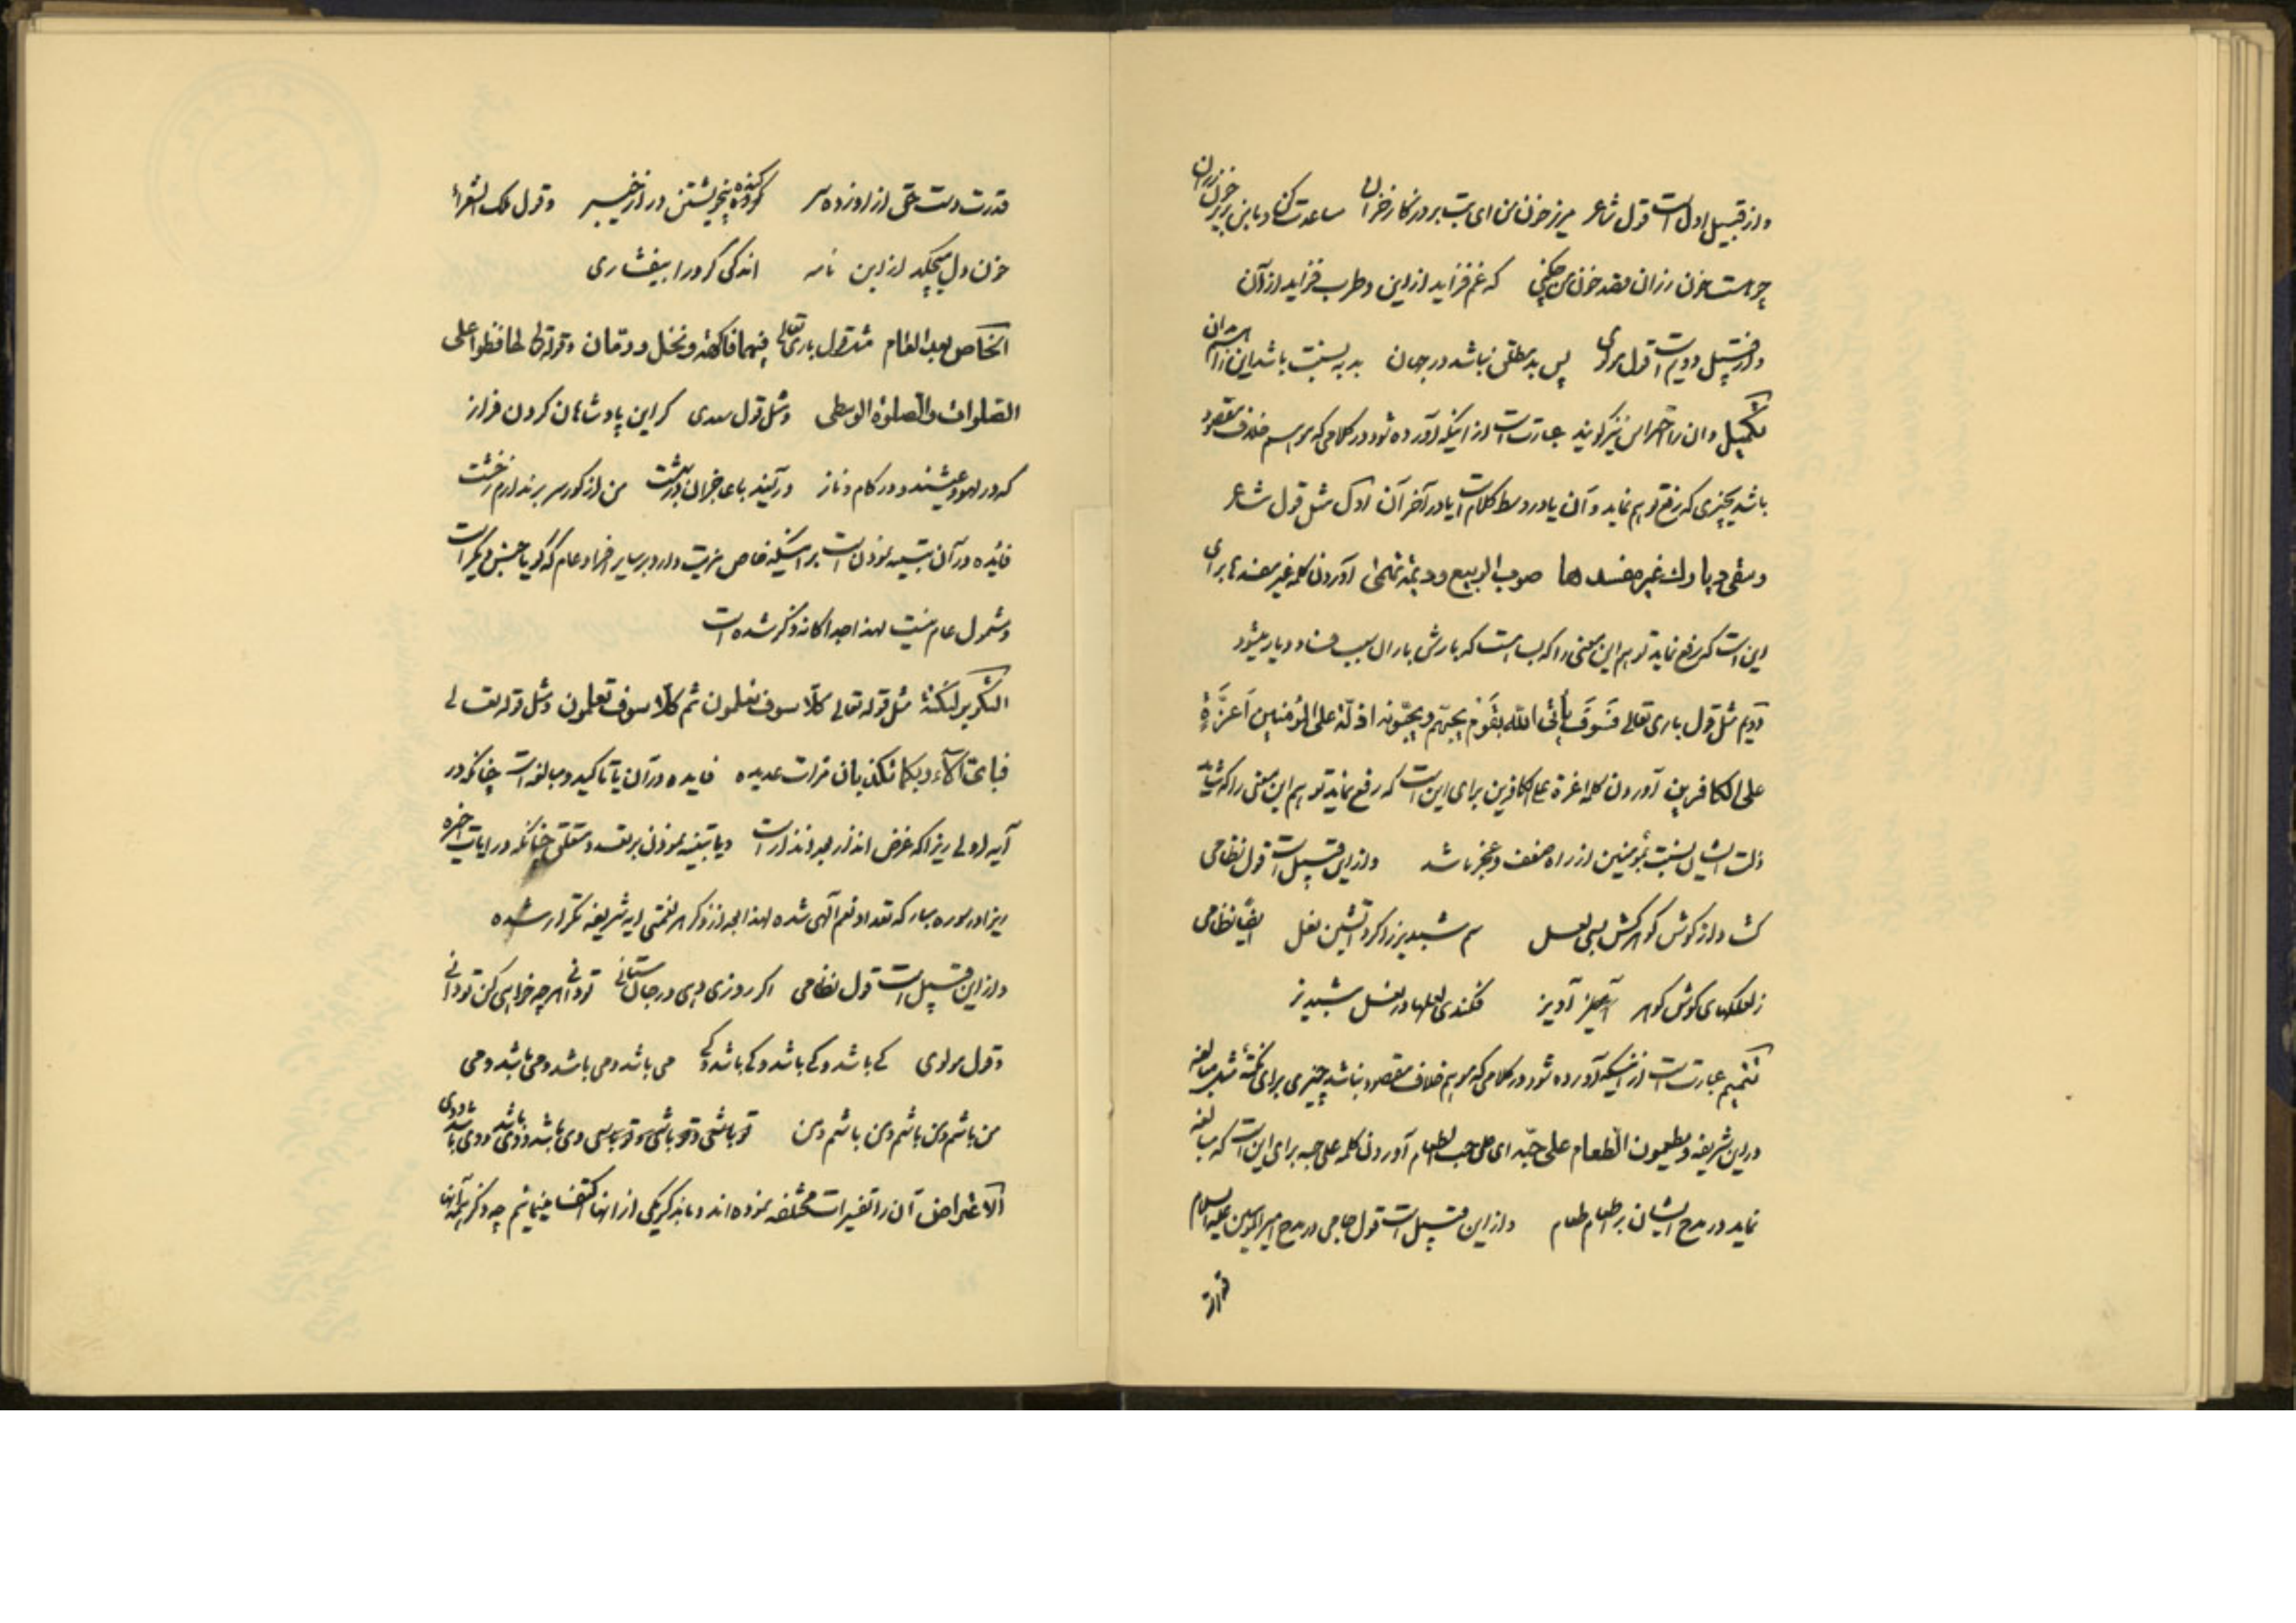 واز قبیل اول است قول شاعر مریز خون من ای بت بروزگار خزان مساعدت کن و با من بریز خون رزان
چو هست خون رزان قصد خون من چکنی که غم فزاید از این و طرب فزاید از آن
واز قبیل دویم است قول مولوی پس بد مطلق نباشد در جهان بد به نسبت باشد این را هم بدان
تکمیل و ان را احتراس نیز گویند عبارتست از اینکه آورده شود در کلامی که موهم خلاف مقصود
باشد بچیزی که رفع توهم نماید و آن یا در وسط کلام است یا در آخر آن اول مثل قول شاعر
وسقی دیارك غیر مفسدها صوب الربیع و دیمة تهمی آوردن کلمه غیر مفسدها برای
این است که رفع نماید توهم این معنی را که بسا هست که بارش باران سبب فساد دیار میشود
دویم مثل قول باری تعالی فَسَوفَ یأتی اللّه بقَومٍ یحبّهم ویحبّونه اذلّة علی المؤمنین اَعزَّةٍ
علی الکافرین آوردن کلمه اعزة علی الکافرین برای این است که رفع نماید توهم این معنی را که شاید
ذلت ایشان نسبت بمؤمنین از راه ضعف و عجز باشد واز این قبیل است قول نظامی
گشاد از گوش گوهرکش بسی لعل سم شبدیز را کرد آتشین نعل ایضا نظامی
ز لعلکهای گوش گوهر آویز فکندی لعلها در نعل شبدیز
تتمیم عبارتست از اینکه آورده شود در کلامی که موهم خلاف مقصود نباشد چیزی برای نکتة مثل مبالغه
در این شریفه ویطعمون الطعام علی حبّه ای علی حب الطعام آوردن کلمه علی حبه برای این است که مبالغه
نماید در مدح ایشان بر اطعام طعام واز این قبیل است قول جامی در مدح امیرالمؤمنین علیه السلام
قدرت
قدرت دست حق از او زده سر کرده کنده بیخویشتن در از خیبر وقول ملک الشعراء
خون دل میچکد از این نامه اندکی گر ورا بیفشاری
الخاص بعد العام مثل قول باری تعالی فیهما فاکهة ونخل ورمان وقوله تعالی حافظوا علی
الصلوات والصلوة الوسطی ومثل قول سعدی گر این پادشاهان گردن فراز
که در لهو و عیشند و در کام و ناز در آیند با عاجزان در بهشت من از گور سر برندارم ز خشت
فایده در آن تنبیه نمودن است بر اینکه خاص مزیت دارد بر سایر افراد عام که گویا جنس دیگر است
ومشمول عام نیست لهذا جداگانه ذکر شده است
التکریر لنکتة مثل قوله تعالی کلّا سوف تعلمون ثم کلّا سوف تعلمون ومثل قوله تعالی
فبای آلاء ربکما تکذبان مرات عدیده فایده در آن یا تاکید و مبالغه است چنانکه در
آیه اولی زیرا که غرض انذار بعد انذار است ویا تنبیه نمودن بر تعدد متعلق چنانکه در ایات اخیره
زیرا در سوره مبارکه تعداد نعم آلهی شده لهذا بعد از ذکر هر نعمتی ایه شریفه تکرار شده
واز این قبیل است قول نظامی اگر روزی دهی ور جان ستانی تو دانی هر چه خواهی کن تو دانی
وقول مولوی کے باشد و کے باشد و کے باشد و کے می باشد و می باشد و می باشد و می
من باشم و من باشم و من باشم و من تو باشی و تو باشی و تو باشی و می باشد
الاعتراض آن را تفسیرات مختلفه نموده اند و ما بذکر یکی از انها اکتفا مینمائیم چه ذکر همه آنها